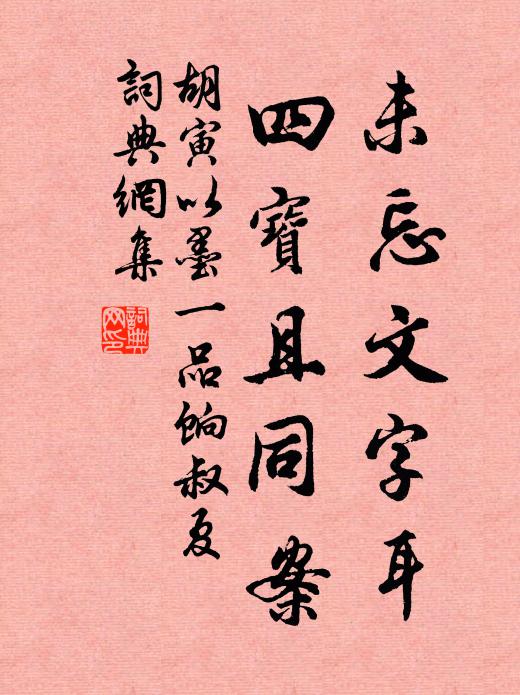 未忘文字耳
四寶且同案
胡寅以墨一品餉叔夏
詞典網集
詞典
网印